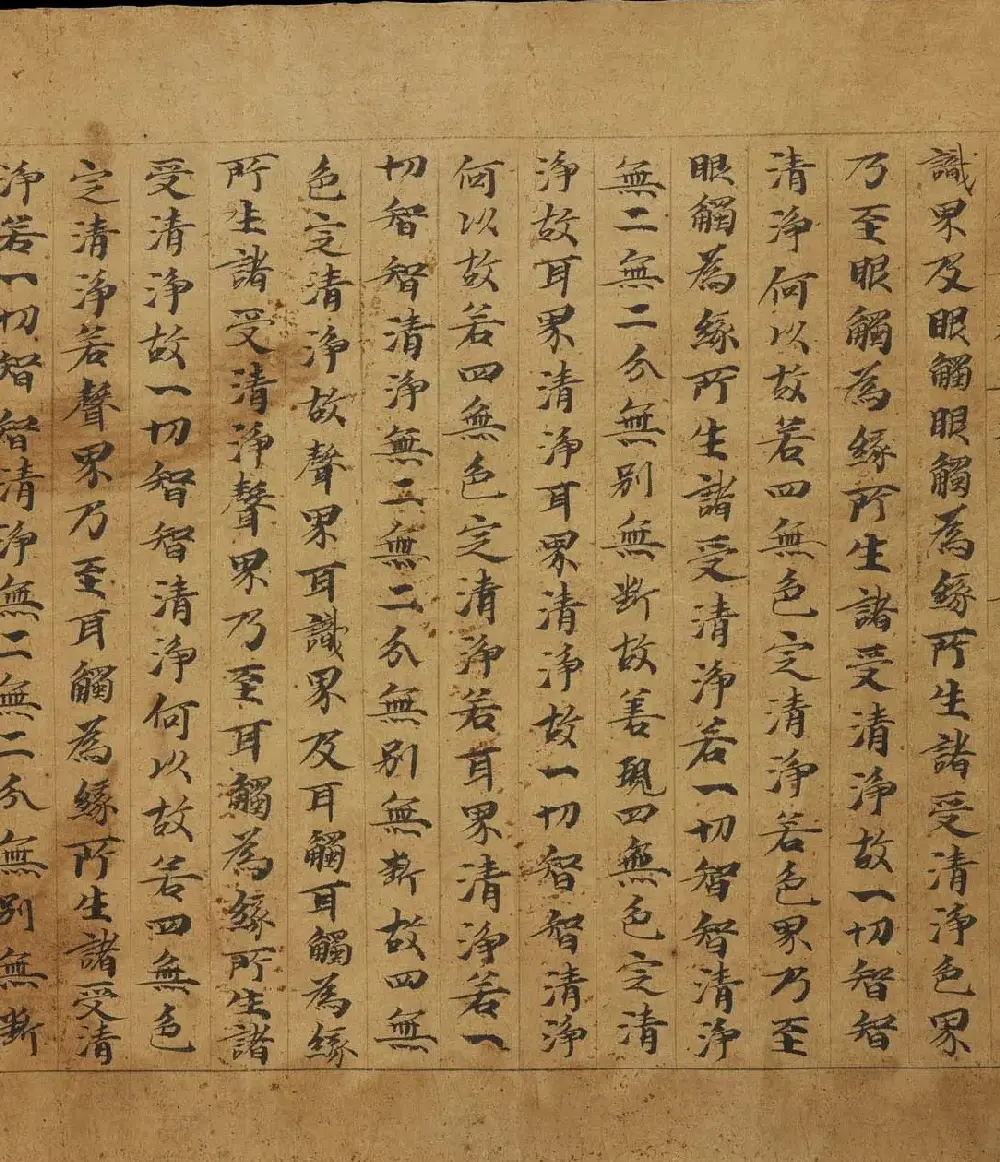 識界及眼觸眼觸為緣所生諸受清淨色界
乃至眼觸為緣所生諸受清淨故一切智智
清淨何以故若四無色定清淨若色界乃至
眼觸為緣所生諸受清淨若一切智智清淨
無二無二分無別無斷故善現四無色定清
淨故耳界清淨耳界清淨故一切智智清淨
何以故若四無色定清淨若耳界清淨若一
切智智清淨無二無二分無別無斷故四無
色定清淨故聲界耳識界及耳觸耳觸為緣
所生諸受清淨聲界乃至耳觸為緣所生諸
受清淨故一切智智清淨何以故若四無色
定清淨若聲界乃至耳觸為緣所生諸受清
淨若一切智智清淨無二無二分無別無斷